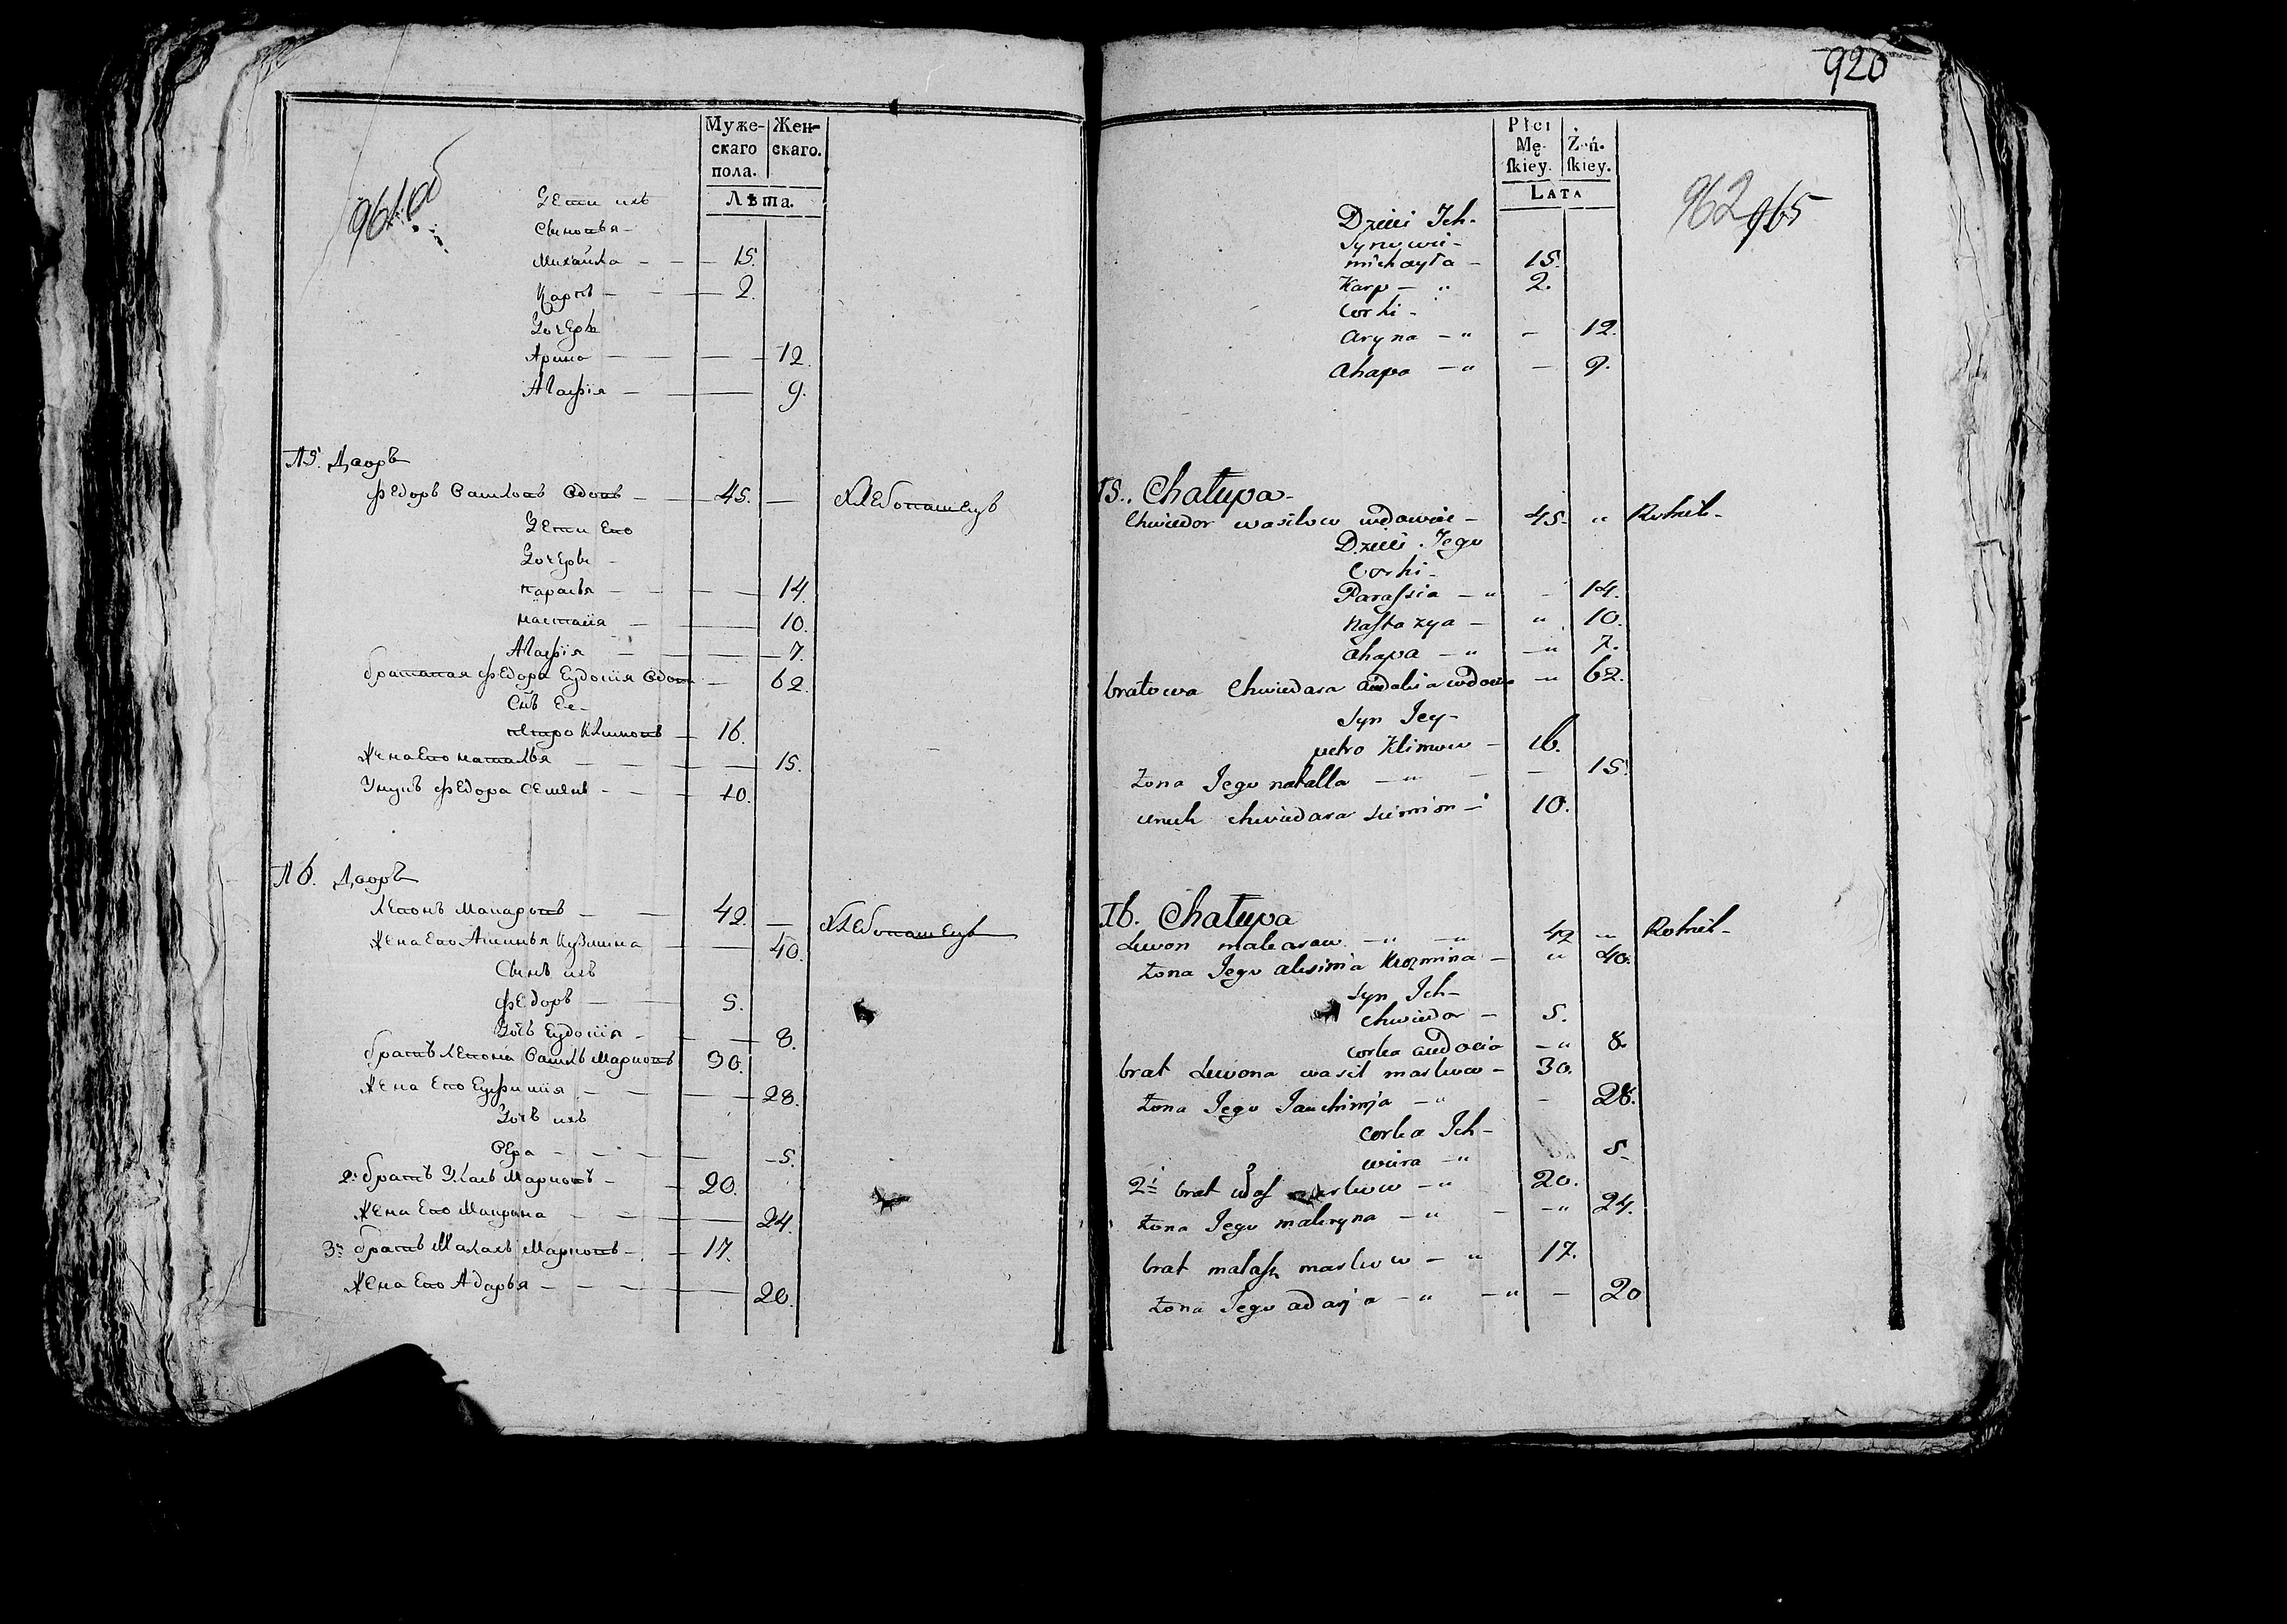 961 об
Муже- Жен-
скаго скаго.
пола.
Лѣта.
Дети ихъ
Сыновья -
Михайла - - 15.
Карпъ - - 2.
Дочери
Арина - - 12.
Агафія - - 9.
15. Дворъ
Федоръ Василовъ вдовъ - 45. - хлебопашецъ
Дети Его
Дочери -
Парасья - - 14.
Настасія - - 10.
Агафія - - 7.
братавая Федора Еудосія вдова - 62.
Сынъ Ее -
петро Климовъ - 16.
Жена Его Наталья - - 15.
Унукъ Федора Семенъ - - 10.
16. Дворъ
Левонъ Макаровъ - - 42. - хлебопашецъ
Жена Его Аксинья Кузмина - - 40.
Сынъ ихъ
Федоръ - - 5.
Дочь Еудосія - - 8.
братъ Левона Василь Марковъ 30.
Жена Его Еуфимія - - 28.
Дочь ихъ
Вера - - 5.
2й братъ Уласъ Марковъ - - 20.
Жена Его Макрына - - 24.
3й братъ Малашъ Марковъ - - 17.
Жена Его Адарья - - 20.
920
962 965
Płci
Mę- Żeń-
ſkiey. ſkiey.
LATA
Dzieci Ich -
Synowie -
michayła - 15.
Karp - " 2.
Corki -
aryna - " - 12.
ahapa - " - 9.
15. Chałupa -
Chwiedor wasilow wdowiec - 45. " Rolnik -
Dzieci Jego
Corki -
Paraſsia - " - 14.
Naſtazya - " 10.
ahapa - " - " 7.
bratowa Chwiedara audocia wdowa - " 62.
Syn Jey -
petro Klimow - 16.
żona Jego natalla - " - - 15.
unuk chwiedara siemion - 10.
16. Chałupa
Lewon makaraw - " - " 42 " Rolnik -
żona Jego aksinia Kuzmina - " 40.
Syn Ich -
chwiedor - 5.
corka audocia - " 8.
brat Lewona wasil markow - 30.
żona Jego Jauchimja - " - 28.
corka Ich -
wiera - " 5.
2i brat ułaſ markow - " 20.
żona Jego makryna - " - - " 24.
brat małaſz markow - " 17.
żona Jego adarja - " - " - 20